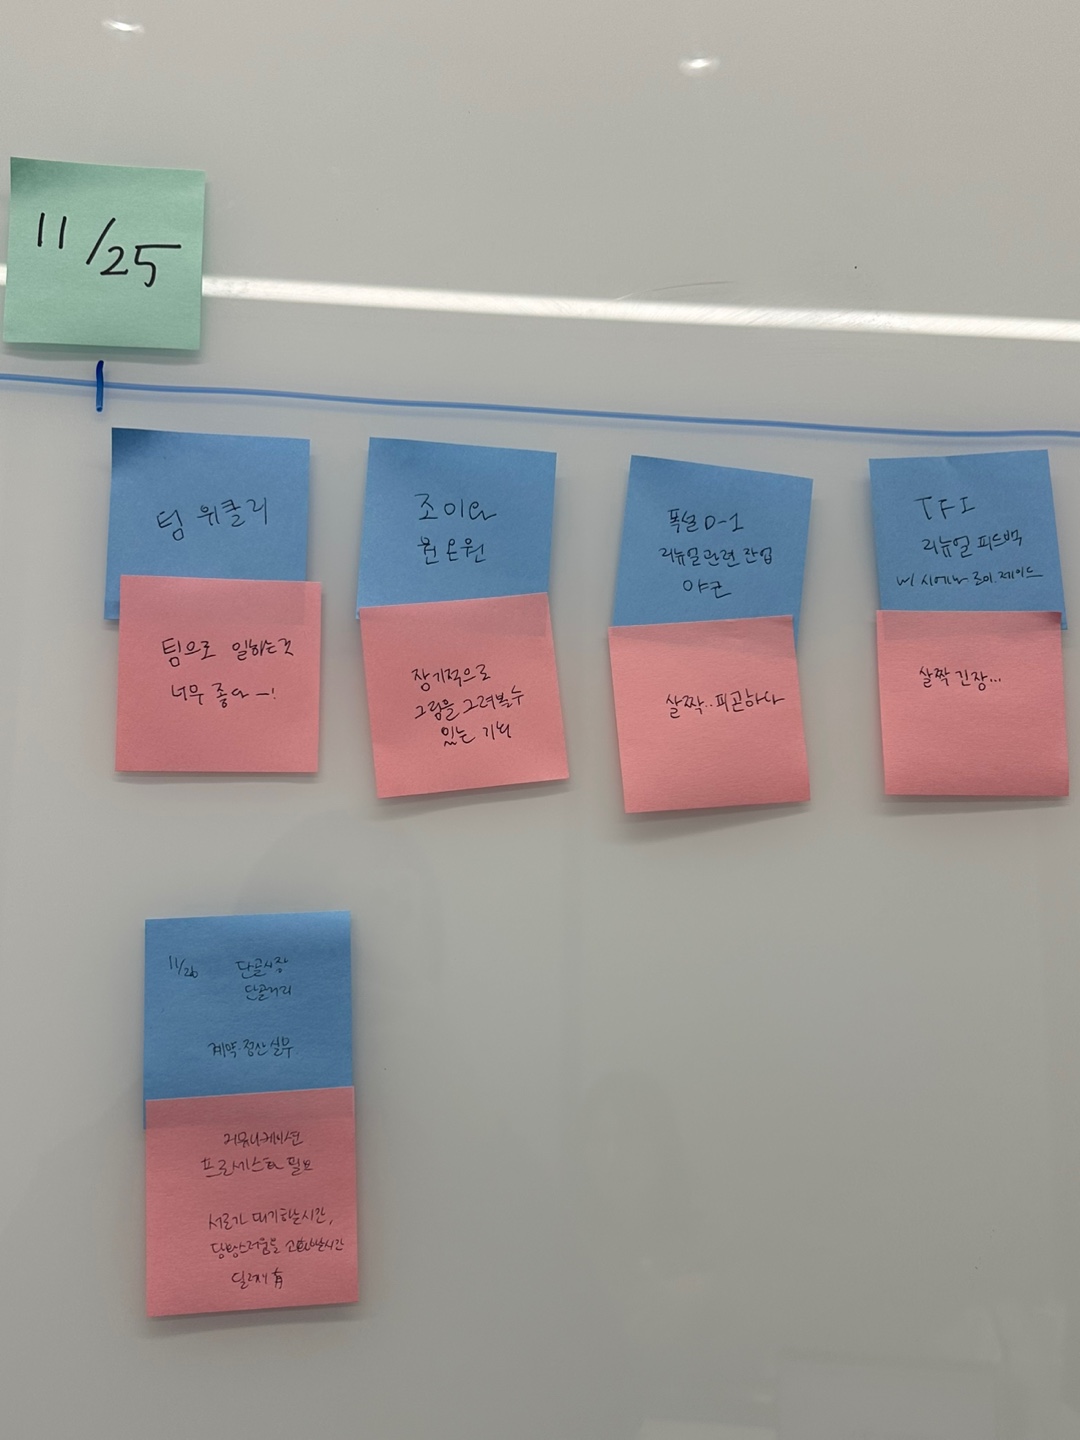 11/25
팀 위클리
팀으로 일하는 것
너무 좋다 —!
조이와
원온원
장기적으로
그림을 그려볼 수
있는 기회
폭설 D-1
리뉴얼 관련 잔업
야근
살짝.. 피곤하다
TFI
리뉴얼 피드백
w/ 시에나 로이, 제이드
살짝 긴장...
11/26 단골시장
단골거리
계약·정산 실무
커뮤니케이션
프로세스화 필요
서로가 대기하는 시간,
당황스러움을 고민하는 시간
딜레이 有